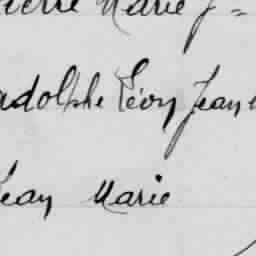 Pierre Marie J=
adolphe Léon Jean
Jean Marie